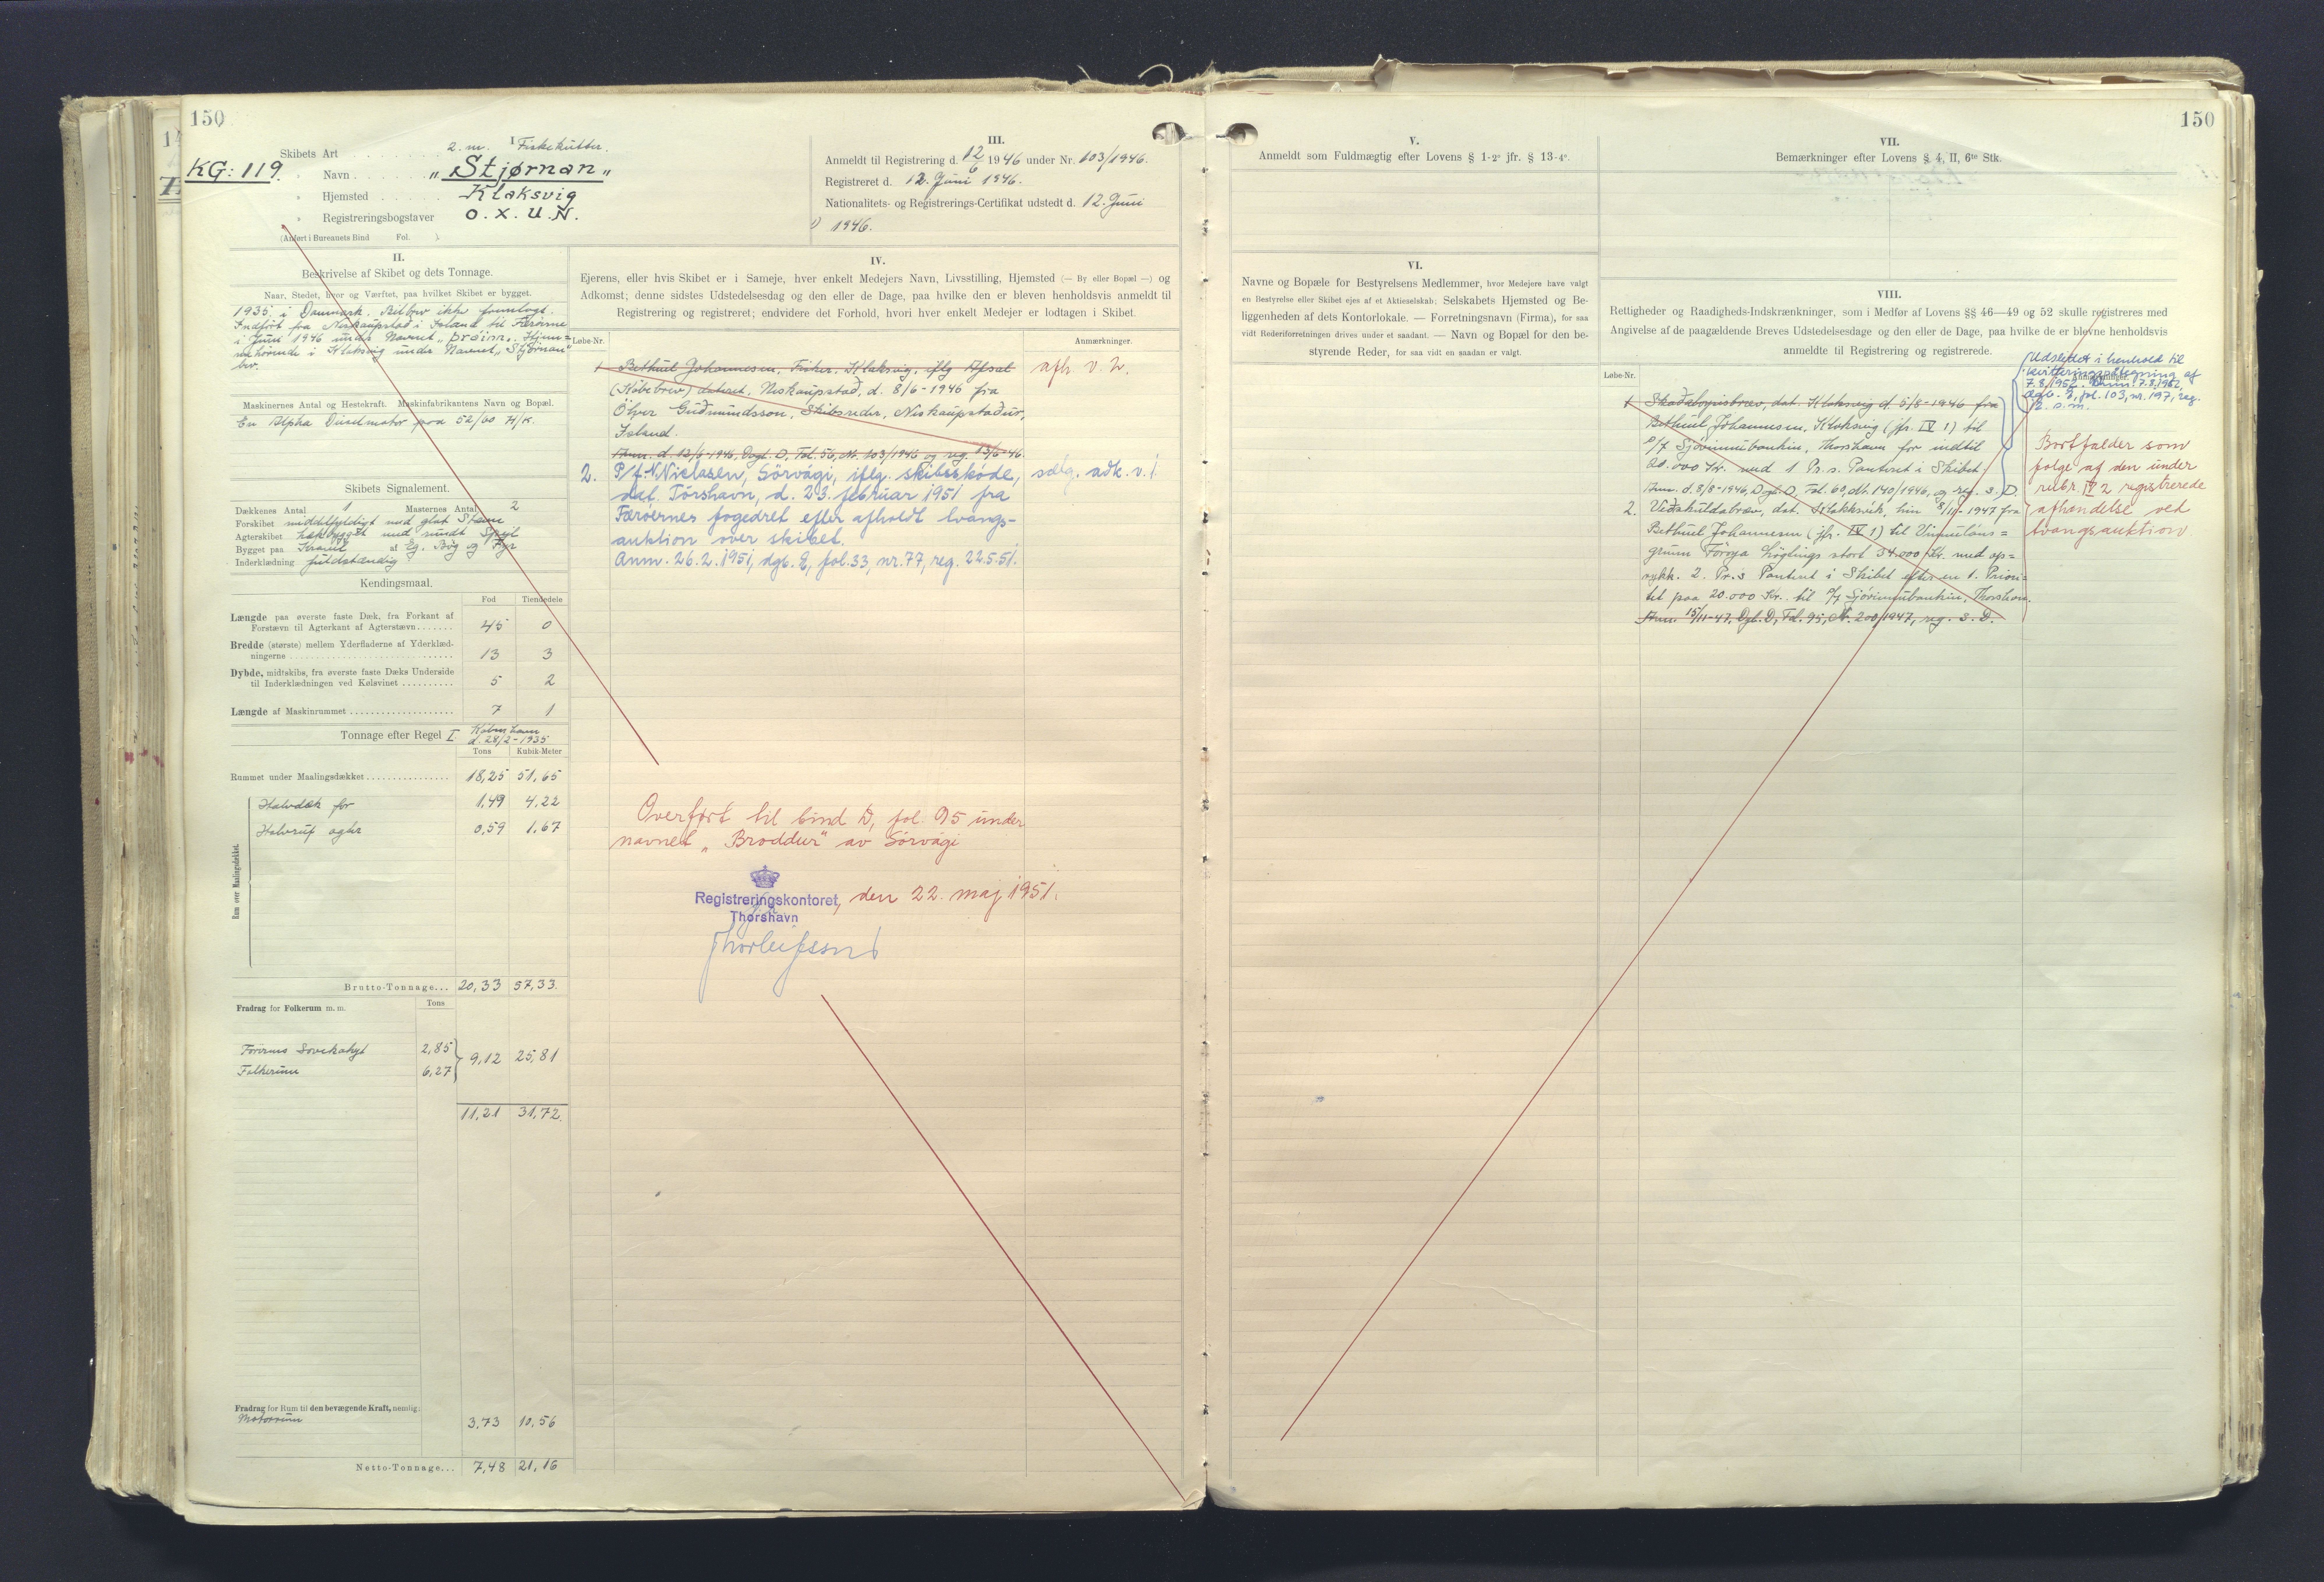 150
I
Skibets Art . . . . . . . 2. m. Fiskekutter.
KG: 119. " Navn . . . . . . „Stjørnan„
" Hjemsted . . . . . Klaksvig
" Registreringsbogstaver O. X. U. N.
(Anført i Bureauets Bind Fol. ).
III.
Anmeldt til Registrering d. 12/6 1946 under Nr. 103/1946.
Registreret d. 12. Juni 1946.
Nationalitets- og Registrerings-Certifikat udstedt d. 12. Juni
1946.
II.
Beskrivelse af Skibet og dets Tonnage.
Naar, Stedet, hvor og Værftet, paa hvilket Skibet er bygget.
1935 i Danmark. Bilbrev ikke forelagt.
Indført fra Neskaupstad i Island til Færøerne
i Juni 1946 under Navnet „Þráinn„. Hjem=
mehørende i Klaksvig under Navnet „Stjørnan"
blv.
Maskinernes Antal og Hestekraft. Maskinfabrikantens Navn og Bopæl.
En Alpha Dieselmotor paa 52/60 H/K.
Skibets Signalement.
Dækkenes Antal 1 Masternes Antal 2
Forskibet middelfyldigt med glat Stævn
Agterskibet hækbygget med rundt Spejl
Bygget paa Kravel af Eg, Bøg og Fyr
Inderklædning fuldstændig
Kendingsmaal.
Fod Tiendedele
Længde paa øverste faste Dæk, fra Forkant af
Forstævn til Agterkant af Agterstævn....... 45 0
Bredde (største) mellem Yderfladerne af Yderklæd-
ningerne ................................ 13 3
Dybde, midtskibs, fra øverste faste Dæks Underside
til Inderklædningen ved Kølsvinet .......... 5 2
Længde af Maskinrummet .................... 7 1
Tonnage efter Regel I København
d. 28/2-1935
Tons Kubik-Meter
Rummet under Maalingsdækket ................ 18,25 51,65
Rum over Maalingsdækket.
Halvdæk for 1,49 4,22
Halvruf agter 0,59 1,67
Brutto-Tonnage... 20,33 57,33.
Fradrag for Folkerum m. m. Tons
Førerens Sovekahyt 2,85
9,12 25,81
Folkerum 6,27
11,21 31,72.
Fradrag for Rum til den bevægende Kraft, nemlig:
Motorrum 3,73 10,56
Netto-Tonnage... 7,48 21,16
IV.
Ejerens, eller hvis Skibet er i Sameje, hver enkelt Medejers Navn, Livsstilling, Hjemsted (— By eller Bopæl —) og
Adkomst; denne sidstes Udstedelsesdag og den eller de Dage, paa hvilke den er bleven henholdsvis anmeldt til
Registrering og registreret; endvidere det Forhold, hvori hver enkelt Medejer er lodtagen i Skibet.
Løbe-Nr. Anmærkninger.
1 Bethuel Johannesen, Fisker, Klaksvig, iflg Afsal afh. v. 2.
(Købebrev) dateret, Neskaupstad, d. 8/6-1946 fra
Ölver Guðmundsson, Skibsreder, Neskaupstaður,
Island.
Anm. d. 12/6-1946, Dagb. D, Fol. 56, Nr. 103/1946 og reg. 13/6-46.
2. P/f. N. Niclasen, Sörvági, iflg. skibsskøde, sælg. adk. v. 1
dat. Tórshavn, d. 23. februar 1951 fra
Færøernes fogedret efter afholdt tvangs-
auktion over skibet.
Anm. 26.2.1951, dgb. E, fol. 33, nr. 77, reg. 22.5.51.
Overført til bind D, fol. 95 under
navnet „Broddur" av Sörvági
Registreringskontoret, den 22. maj 1951.
Thorshavn
Thorleifsson
150
V.
Anmeldt som Fuldmægtig efter Lovens § 1-2° jfr. § 13-4°.
VII.
Bemærkninger efter Lovens § 4, II, 6te Stk.
VI.
Navne og Bopæle for Bestyrelsens Medlemmer, hvor Medejere have valgt
en Bestyrelse eller Skibet ejes af et Aktieselskab; Selskabets Hjemsted og Be-
liggenheden af dets Kontorlokale. — Forretningsnavn (Firma), for saa
vidt Rederiforretningen drives under et saadant. — Navn og Bopæl for den be-
styrende Reder, for saa vidt en saadan er valgt.
VIII.
Rettigheder og Raadigheds-Indskrænkninger, som i Medfør af Lovens §§ 46—49 og 52 skulle registreres med
Angivelse af de paagældende Breves Udstedelsesdage og den eller de Dage, paa hvilke de er blevne henholdsvis
anmeldte til Registrering og registrerede.
Løbe-Nr. Anmærkninger.
Udslettet i henhold til
kvitteringspåtegning af
7.8.1952. Anm. 7.8.1952,
dgb. E, fol. 103, nr. 197, reg.
s. m.
1 Skadesløsbrev, dat. Klaksvig d. 5/8-1946 fra
Bethuel Johannesen, Klaksvig (jfr. IV 1) til
P/f Sjóvinnubankin, Thorshavn for indtil
20.000 Kr. med 1 Pr.s. Panteret i Skibet
Anm. d. 8/8-1946, Dgb. D, Fol. 60, Nr. 140/1946, og reg. s. D.
2. Veðskuldabræv, dat. Klakksvík, hin 8/11-1947 fra
Bethuel Johannesen (jfr. IV 1) til Vinnuláns=
grunn Føroya Løgtings stort 34.000 Kr. med op=
rykk. 2. Pr.s Panteret i Skibet efter en 1. Priori=
tet paa 20.000 Kr. til P/f Sjóvinnubankin, Thorshavn.
Anm. 15/11-47, Dgb. D, Fol. 95, Nr. 200/1947, reg. s. D.
Bortfalder som
følge af den under
rubr. IV 2 registrerede
afhændelse ved
tvangsauktion